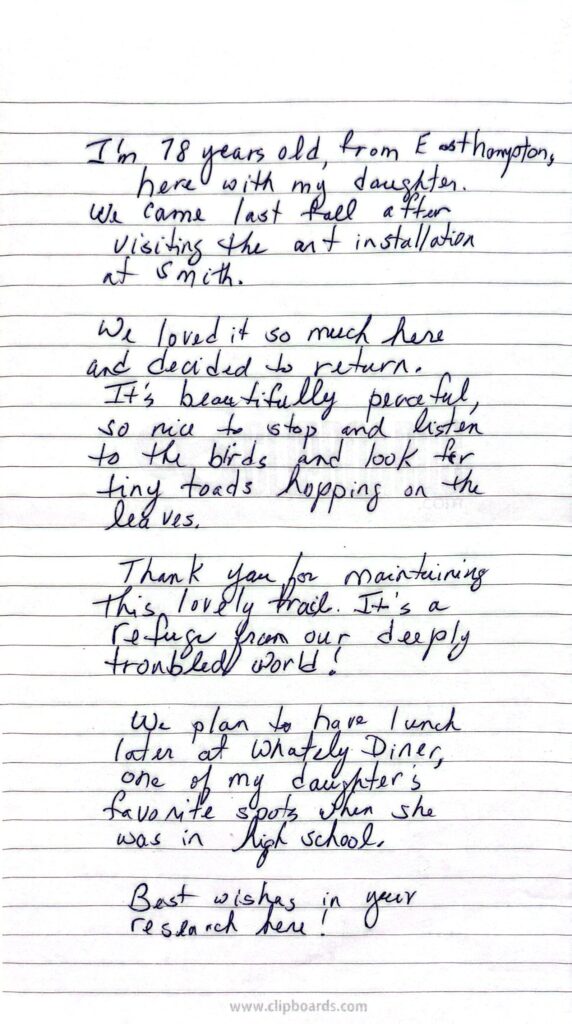 I'm 78 years old, from Easthampton,
here with my daughter.
We came last fall after
visiting the art installation
at Smith.
We loved it so much here
and decided to return.
It's beautifully peaceful,
so nice to stop and listen
to the birds and look for
tiny toads hopping on the
leaves.
Thank you for maintaining
this lovely trail. It's a
refuge from our deeply
troubled world!
We plan to have lunch
later at Whately Diner,
one of my daughter's
favorite spots when she
was in high school.
Best wishes in your
research here!
www.clipboards.com